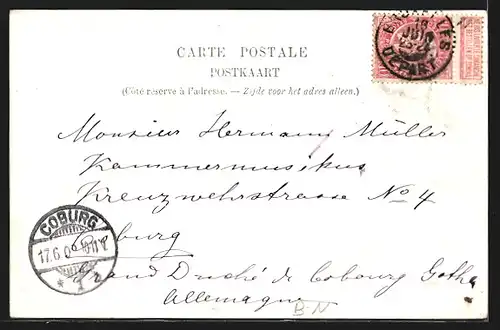 CARTE POSTALE
POSTKAART
(Côté réservé à l'adresse. — Zijde voor het adres alleen.)
DEPART
Monsieur Hermann Müller
Kammermusikus
Kreuzwehrstrasse No 4
Coburg
Grand Duché de Cobourg Gotha
Allemagne
COBURG
17.6.0
B-N